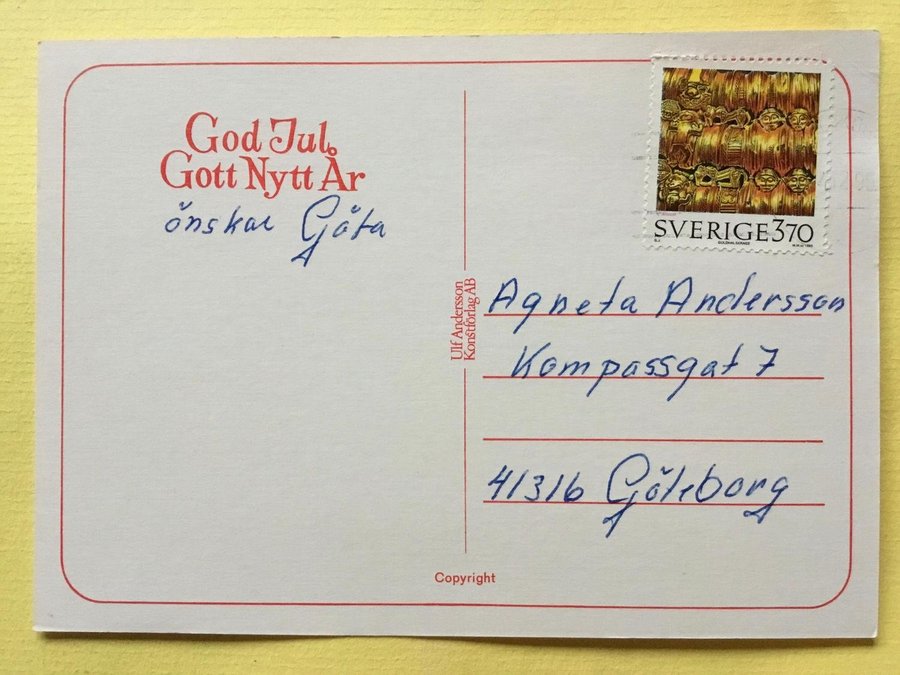 God Jul,
Gott Nytt År
önskar Göta
SVERIGE 370
GULDHALSKRAGE
Ulf Andersson
Konstförlag AB
Agneta Andersson
Kompassgat 7
41316 Göteborg
Copyright